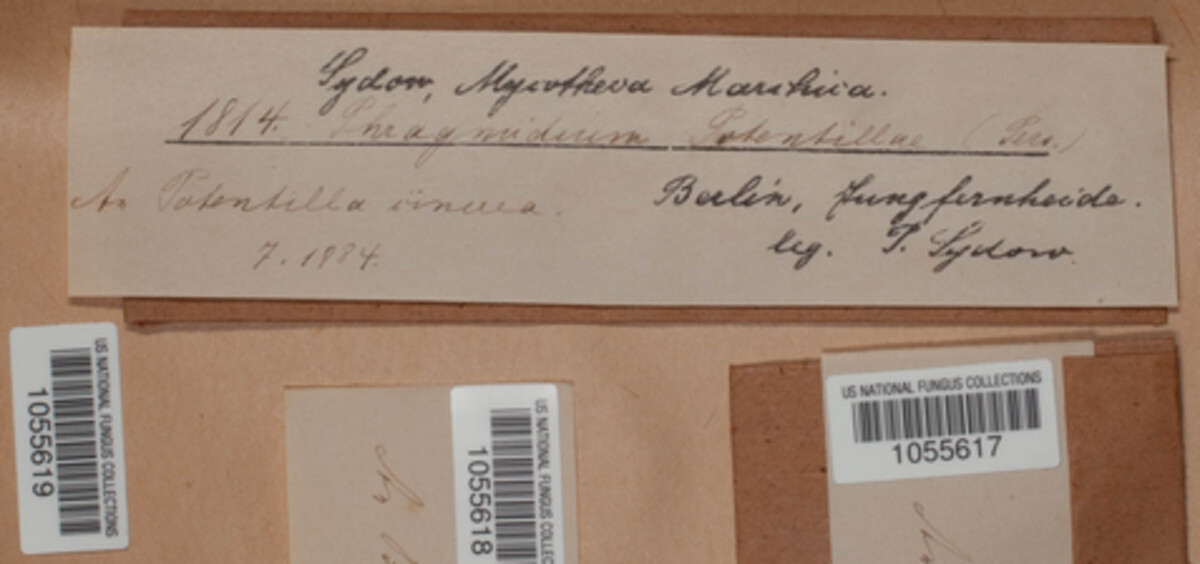 Sydow, Mycotheca Marchica.
1814. Phragmidium Potentillae (Pers.)
An Potentilla cinerea.
7. 1884.
Berlin, Jungfernheide.
leg. P. Sydow.
US NATIONAL FUNGUS COLLECTIONS
1055619
US NATIONAL FUNGUS COLLEC
1055618
US NATIONAL FUNGUS COLLECTIONS
1055617
An